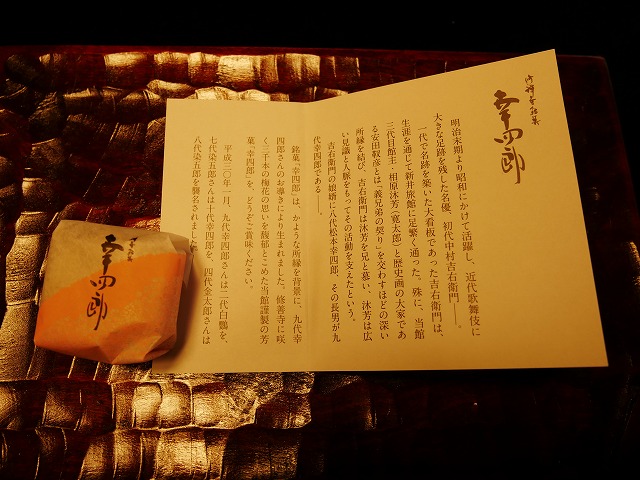 幸四郎
明治末期より昭和にかけて活躍し、近代歌舞伎に
大きな足跡を残した名優、初代中村吉右衛門――。
一代で名跡を築いた大看板であった吉右衛門は、
生涯を通じて新井旅館に足繁く通った。殊に、当館
三代目館主・相原沐芳（寛太郎）と歴史画の大家であ
る安田靫彦とは「義兄弟の契り」を交わすほどの深い
所縁を結び、吉右衛門は沐芳を兄と慕い、沐芳は広
い見識と人脈をもってその活動を支えたという。
吉右衛門の娘婿に八代松本幸四郎、その長男が九
代幸四郎である――。
銘菓「幸四郎」は、かような所縁を背景に、九代幸
四郎さんのお導きにより生まれました。修善寺に咲
く三千本の梅花の思いを残郁とこめた当館謹製の芳
菓「幸四郎」を、どうぞご賞味ください。
平成三〇年一月、九代幸四郎さんは二代白鸚を、
七代染五郎さんは十代幸四郎を、四代金太郎さんは
八代染五郎を襲名されました。
幸四郎